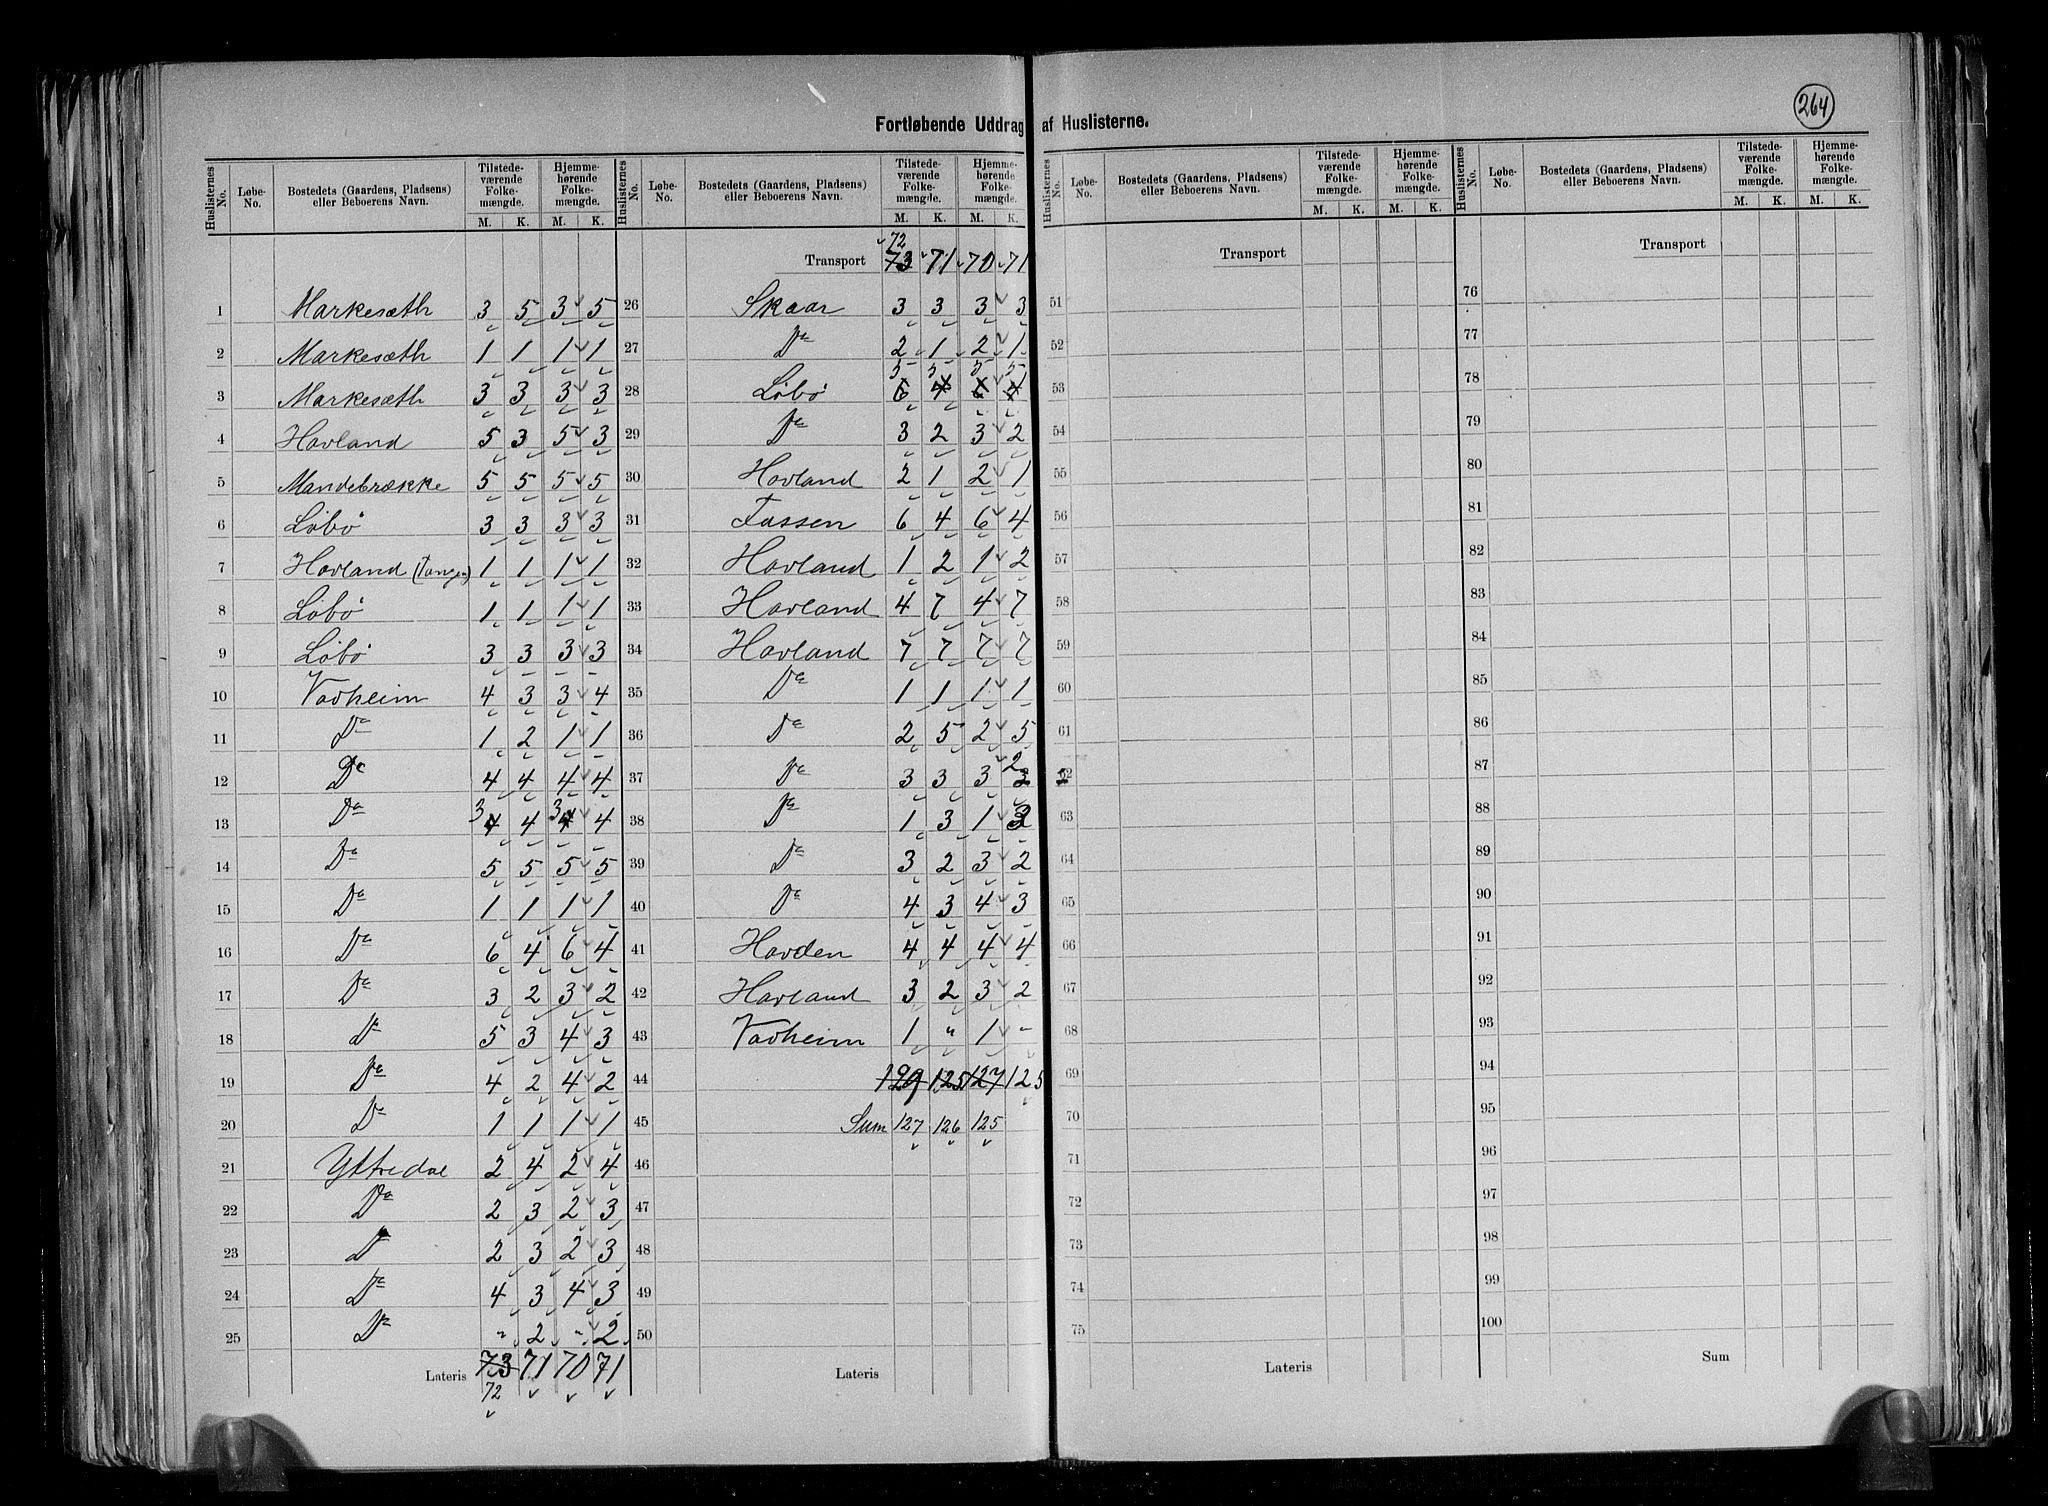 264
Fortløbende Uddrag af Huslisterne.
Huslisternes No. Løbe-No. Bostedets (Gaardens, Pladsens) eller Beboerens Navn. Tilstedeværende Folkemængde. M. K. Hjemmehørende Folkemængde. M. K.
1 Markesæth 3 5 3 5
2 Markesæth 1 1 1 1
3 Markesæth 3 3 3 3
4 Hovland 5 3 5 3
5 Mandebrække 5 5 5 5
6 Løbø 3 3 3 3
7 Hovland (Tangen) 1 1 1 1
8 Løbø 1 1 1 1
9 Løbø 3 3 3 3
10 Vadheim 4 3 3 4
11 Do 1 2 1 1
12 Do 4 4 4 4
13 Do 3 4 4 3 4 4
14 Do 5 5 5 5
15 Do 1 1 1 1
16 Do 6 4 6 4
17 Do 3 2 3 2
18 Do 5 3 4 3
19 Do 4 2 4 2
20 Do 1 1 1 1
21 Yttredal 2 4 2 4
22 Do 2 3 2 3
23 Do 2 3 2 3
24 Do 4 3 4 3
25 Do " 2 " 2
Lateris 73 71 70 71
72
Huslisternes No. Løbe-No. Bostedets (Gaardens, Pladsens) eller Beboerens Navn. Tilstedeværende Folkemængde. M. K. Hjemmehørende Folkemængde. M. K.
72
Transport 73 71 70 71
26 Skaar 3 3 3 3
27 Do 2 1 2 1
5 5 5 5
28 Løbø 6 4 6 4
29 Do 3 2 3 2
30 Hovland 2 1 2 1
31 Tassen 6 4 6 4
32 Hovland 1 2 1 2
33 Hovland 4 7 4 7
34 Hovland 7 7 7 7
35 Do 1 1 1 1
36 Do 2 5 2 5
37 Do 3 3 3 2
38 Do 1 3 1 3
39 Do 3 2 3 2
40 Do 4 3 4 3
41 Hovden 4 4 4 4
42 Hovland 3 2 3 2
43 Vadheim 1 " 1 "
44 129 125 127 125
45 Sum 127 126 125
46
47
48
49
50
Lateris
Huslisternes No. Løbe-No. Bostedets (Gaardens, Pladsens) eller Beboerens Navn. Tilstedeværende Folkemængde. M. K. Hjemmehørende Folkemængde. M. K.
Transport
51
52
53
54
55
56
57
58
59
60
61
62
63
64
65
66
67
68
69
70
71
72
73
74
75
Lateris
Huslisternes No. Løbe-No. Bostedets (Gaardens, Pladsens) eller Beboerens Navn. Tilstedeværende Folkemængde. M. K. Hjemmehørende Folkemængde. M. K.
Transport
76
77
78
79
80
81
82
83
84
85
86
87
88
89
90
91
92
93
94
95
96
97
98
99
100
Sum